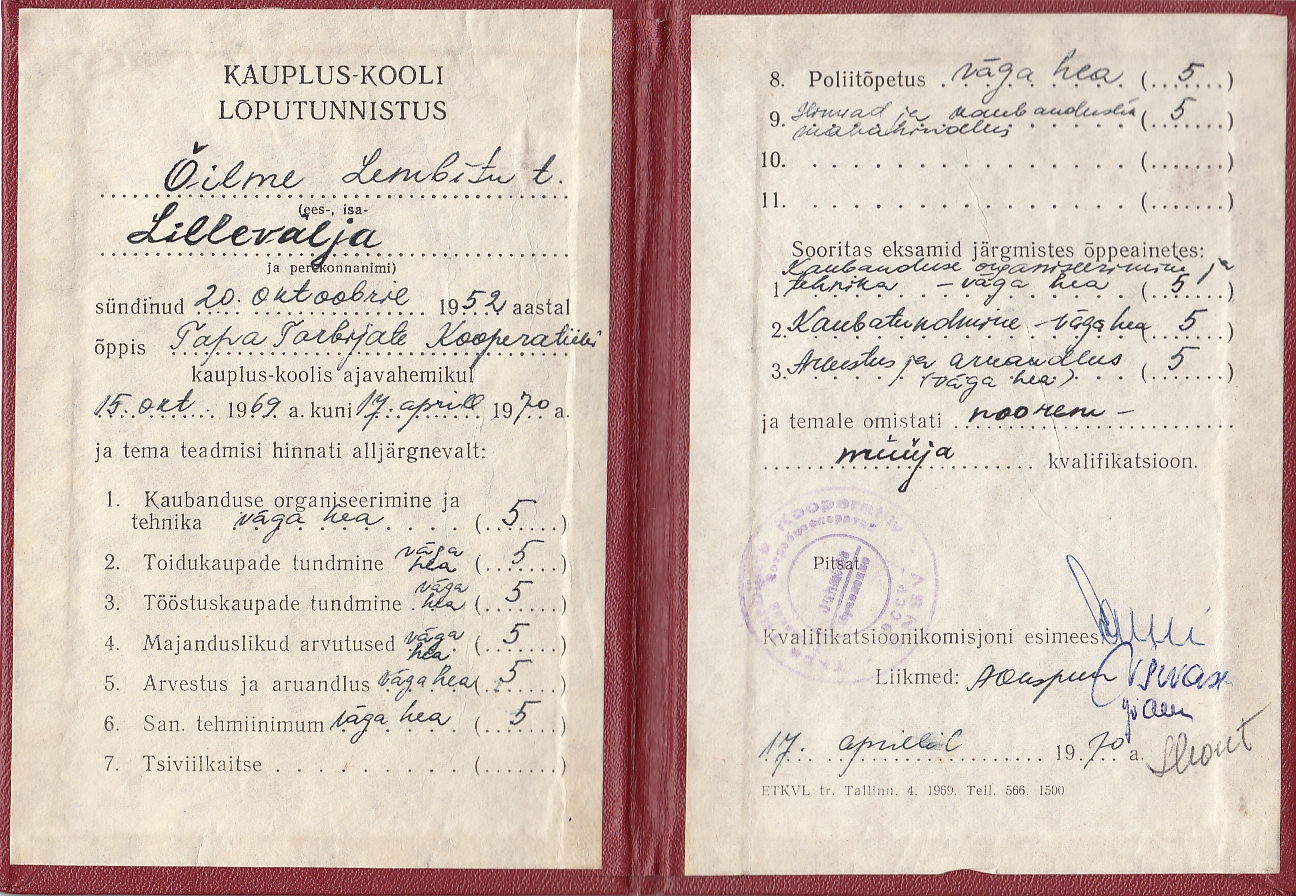 KAUPLUS-KOOLI
LÕPUTUNNISTUS
Õilme Lembitu t.
(ees-, isa-
Lillevälja
ja perekonnanimi)
sündinud 20. oktoobril 1952 aastal
õppis Tapa Tarbijate Kooperatiivi
kauplus-koolis ajavahemikul
15. okt. 1969 a. kuni 17. aprill 1970 a.
ja tema teadmisi hinnati alljärgnevalt:
1. Kaubanduse organiseerimine ja
tehnika väga hea (5)
2. Toidukaupade tundmine väga hea (5)
3. Tööstuskaupade tundmine väga hea (5)
4. Majanduslikud arvutused väga hea (5)
5. Arvestus ja aruandlus väga hea (5)
6. San. tehmiinimum väga hea (5)
7. Tsiviilkaitse . . . . . . . . . (.......)
8. Poliitõpetus väga hea (5)
9. ja kaubanduslik (5)
10. . . . . . . . . . . . . . (.......)
11. . . . . . . . . . . . . . (.......)
Sooritas eksamid järgmistes õppeainetes:
Kaubanduse organiseerimine ja
1. tehnika – väga hea (5)
2. Kaubatundmine – väga hea (5)
3. Arvestus ja aruandlus (5)
(väga hea)
ja temale omistati noorem-
müüja kvalifikatsioon.
Pitsat
Juhatus
Правление
Kvalifikatsioonikomisjoni esimees
Liikmed:
17. aprillil 1970 a.
ETKVL tr. Tallinn. 4. 1969. Tell. 566. 1500